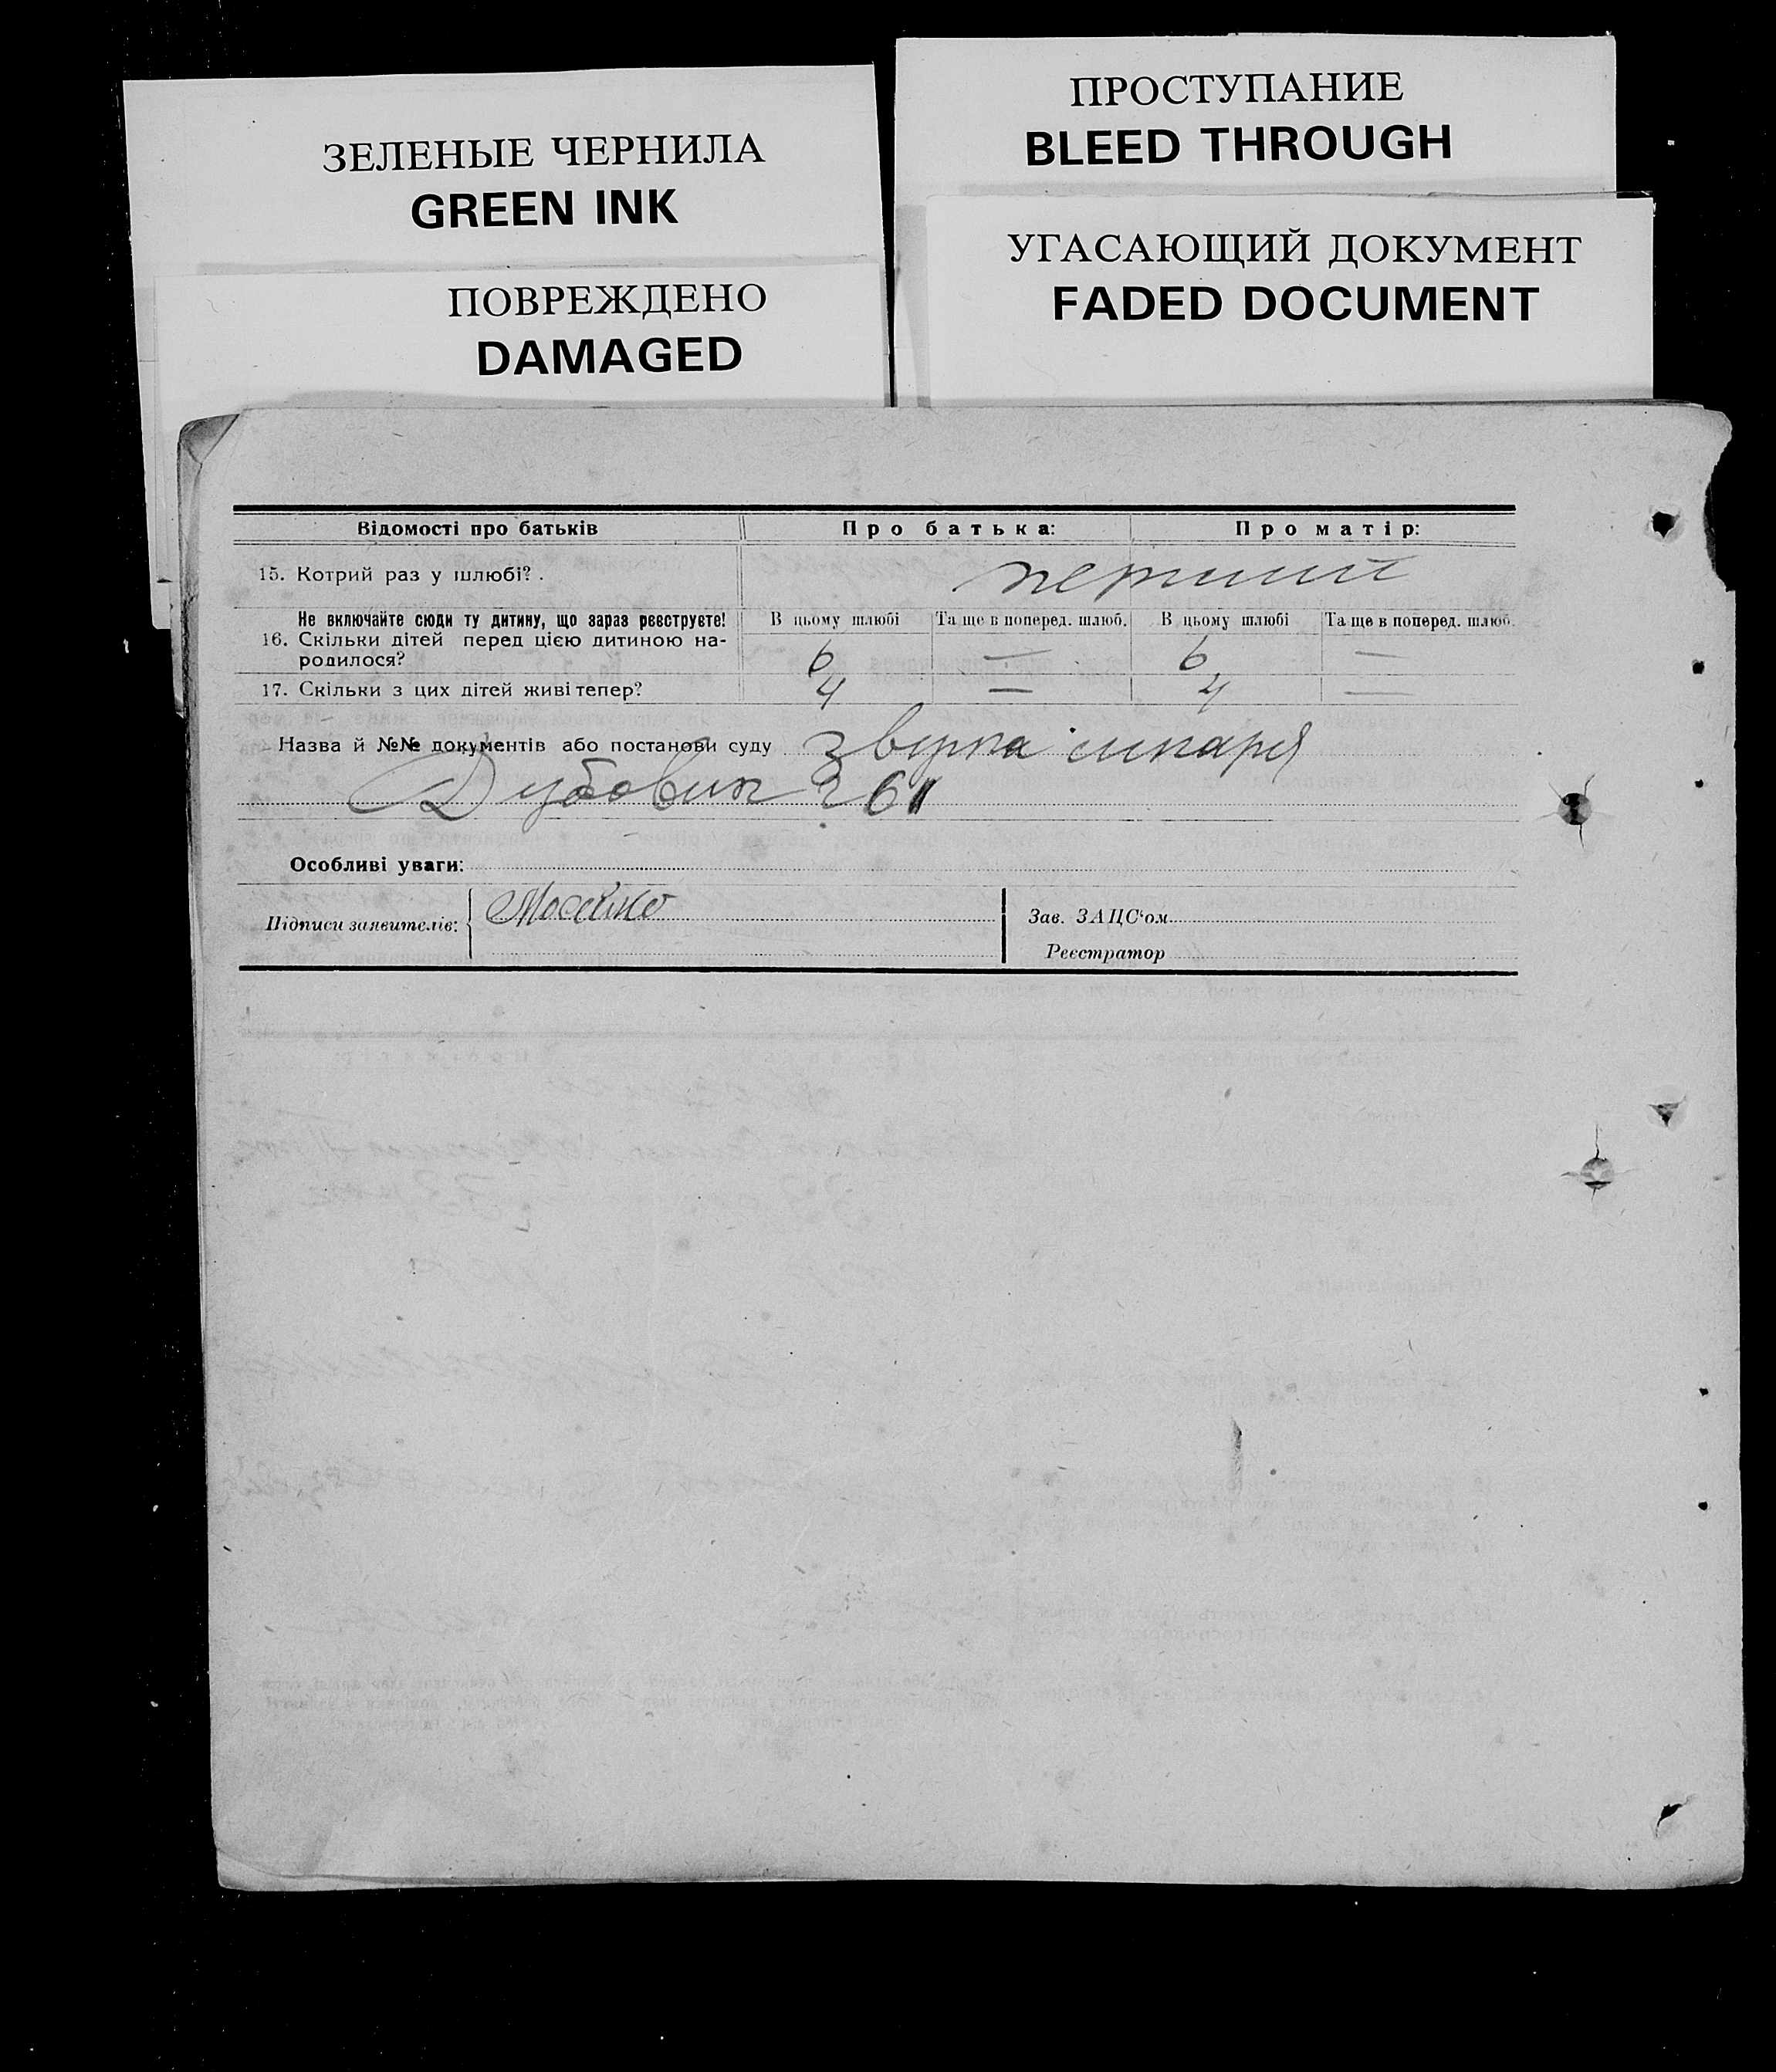 ЗЕЛЕНЫЕ ЧЕРНИЛА
GREEN INK
ПОВРЕЖДЕНО
DAMAGED
ПРОСТУПАНИЕ
BLEED THROUGH
УГАСАЮЩИЙ ДОКУМЕНТ
FADED DOCUMENT
Відомості про батьків Про батька: Про матір:
15. Котрий раз у шлюбі? . перший
Не включайте сюди ту дитину, що зараз реєструєте! В цьому шлюбі Та ще в поперед. шлюб. В цьому шлюбі Та ще в поперед. шлюб.
16. Скільки дітей перед цією дитиною на-
родилося? 6 — 6 —
17. Скільки з цих дітей живі тепер? 4 — 4 —
Назва й №№ документів або постанови суду
Особливі уваги:
Підписи заявителів:
Зав. ЗАЦС‘ом
Реєстратор